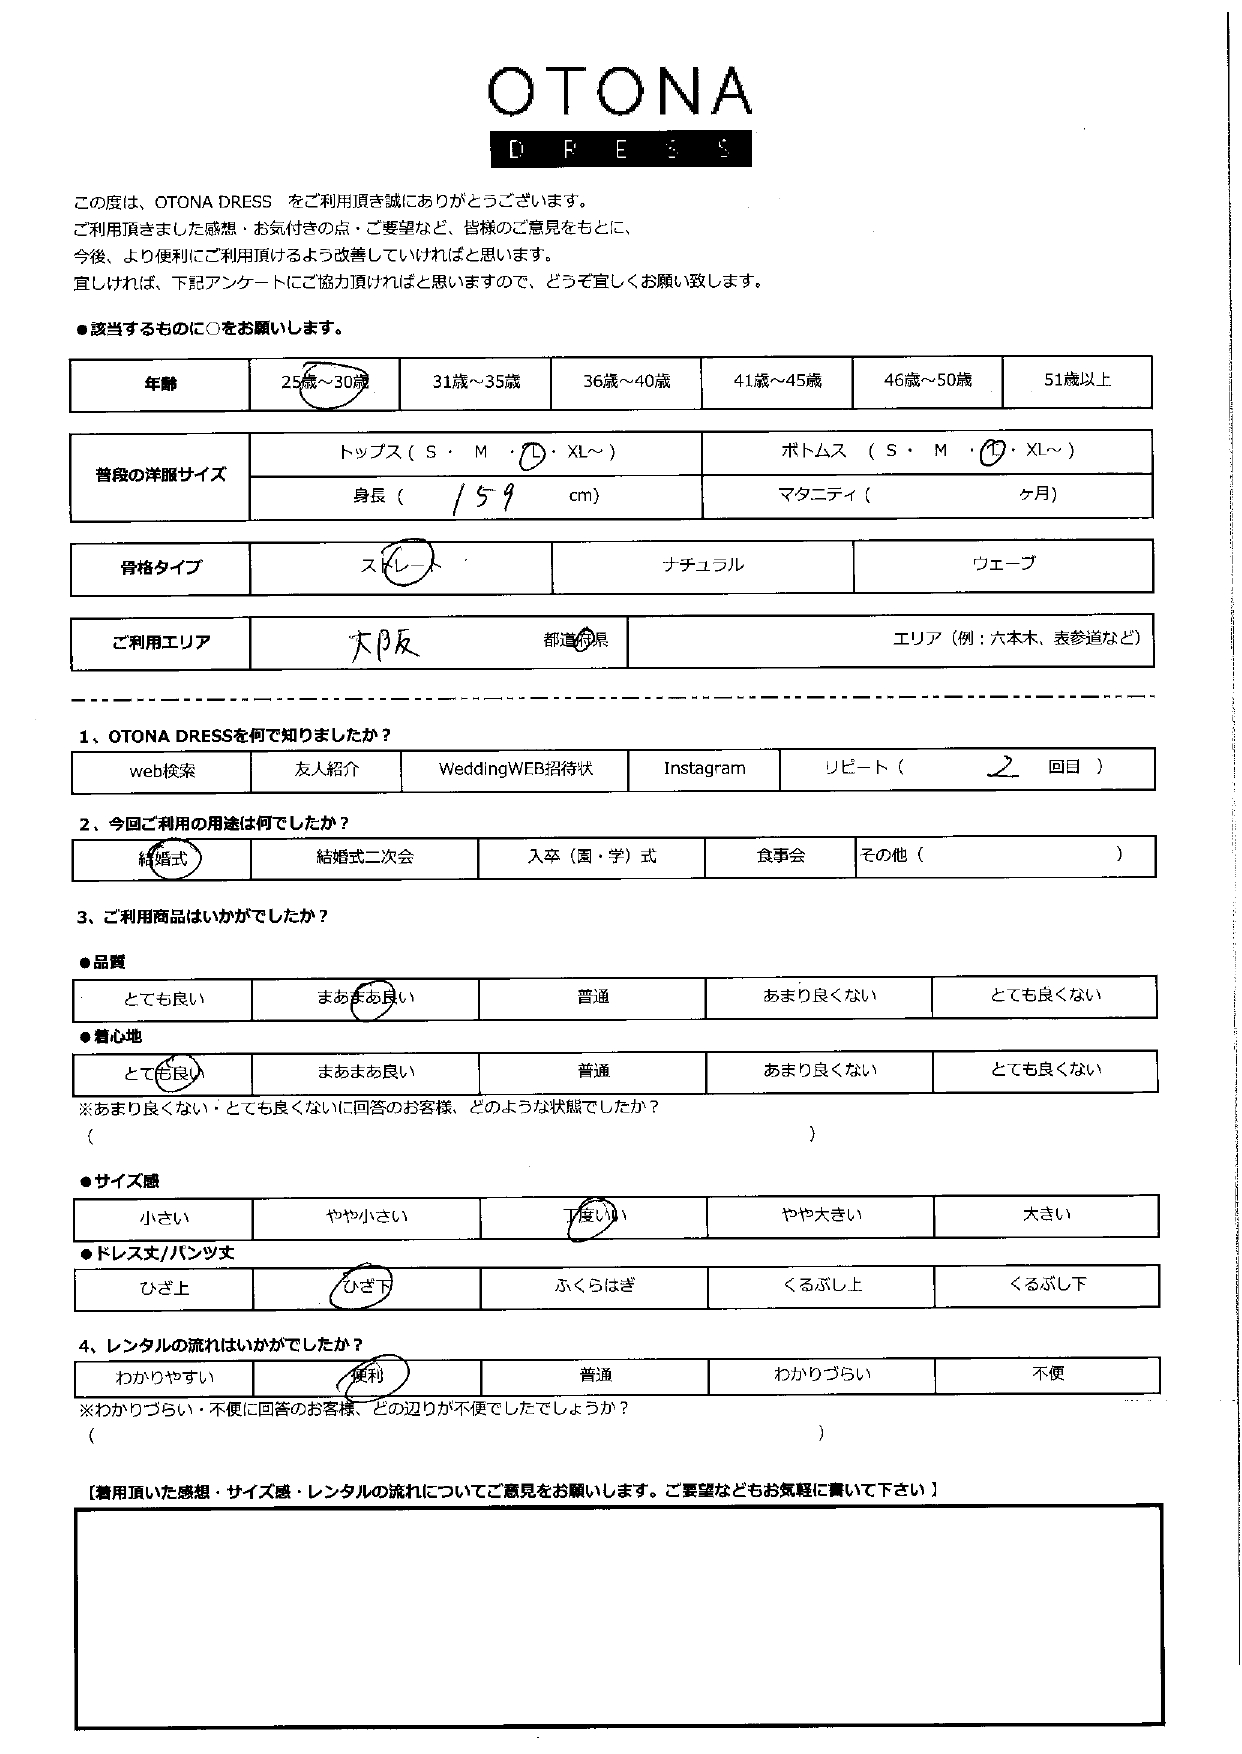 OTONA
DRESS
この度は、OTONA DRESS　をご利用頂き誠にありがとうございます。
ご利用頂きました感想・お気付きの点・ご要望など、皆様のご意見をもとに、
今後、より便利にご利用頂けるよう改善していければと思います。
宜しければ、下記アンケートにご協力頂ければと思いますので、どうぞ宜しくお願い致します。
●該当するものに○をお願いします。
年齢 25歳～30歳 31歳～35歳 36歳～40歳 41歳～45歳 46歳～50歳 51歳以上
普段の洋服サイズ トップス ( S ・ M ・ L ・ XL～ ) ボトムス ( S ・ M ・ L ・ XL～ )
身長 ( 159 cm) マタニティ ( ヶ月)
骨格タイプ ストレート ナチュラル ウェーブ
ご利用エリア 大阪 都道府県 エリア（例：六本木、表参道など）
1、OTONA DRESSを何で知りましたか？
web検索 友人紹介 WeddingWEB招待状 Instagram リピート（ 2 回目 ）
2、今回ご利用の用途は何でしたか？
結婚式 結婚式二次会 入卒（園・学）式 食事会 その他（ ）
3、ご利用商品はいかがでしたか？
●品質
とても良い まあまあ良い 普通 あまり良くない とても良くない
●着心地
とても良い まあまあ良い 普通 あまり良くない とても良くない
※あまり良くない・とても良くないに回答のお客様、どのような状態でしたか？
（ ）
●サイズ感
小さい やや小さい 丁度いい やや大きい 大きい
●ドレス丈/パンツ丈
ひざ上 ひざ下 ふくらはぎ くるぶし上 くるぶし下
4、レンタルの流れはいかがでしたか？
わかりやすい 便利 普通 わかりづらい 不便
※わかりづらい・不便に回答のお客様、どの辺りが不便でしたでしょうか？
（ ）
【着用頂いた感想・サイズ感・レンタルの流れについてご意見をお願いします。ご要望などもお気軽に書いて下さい】